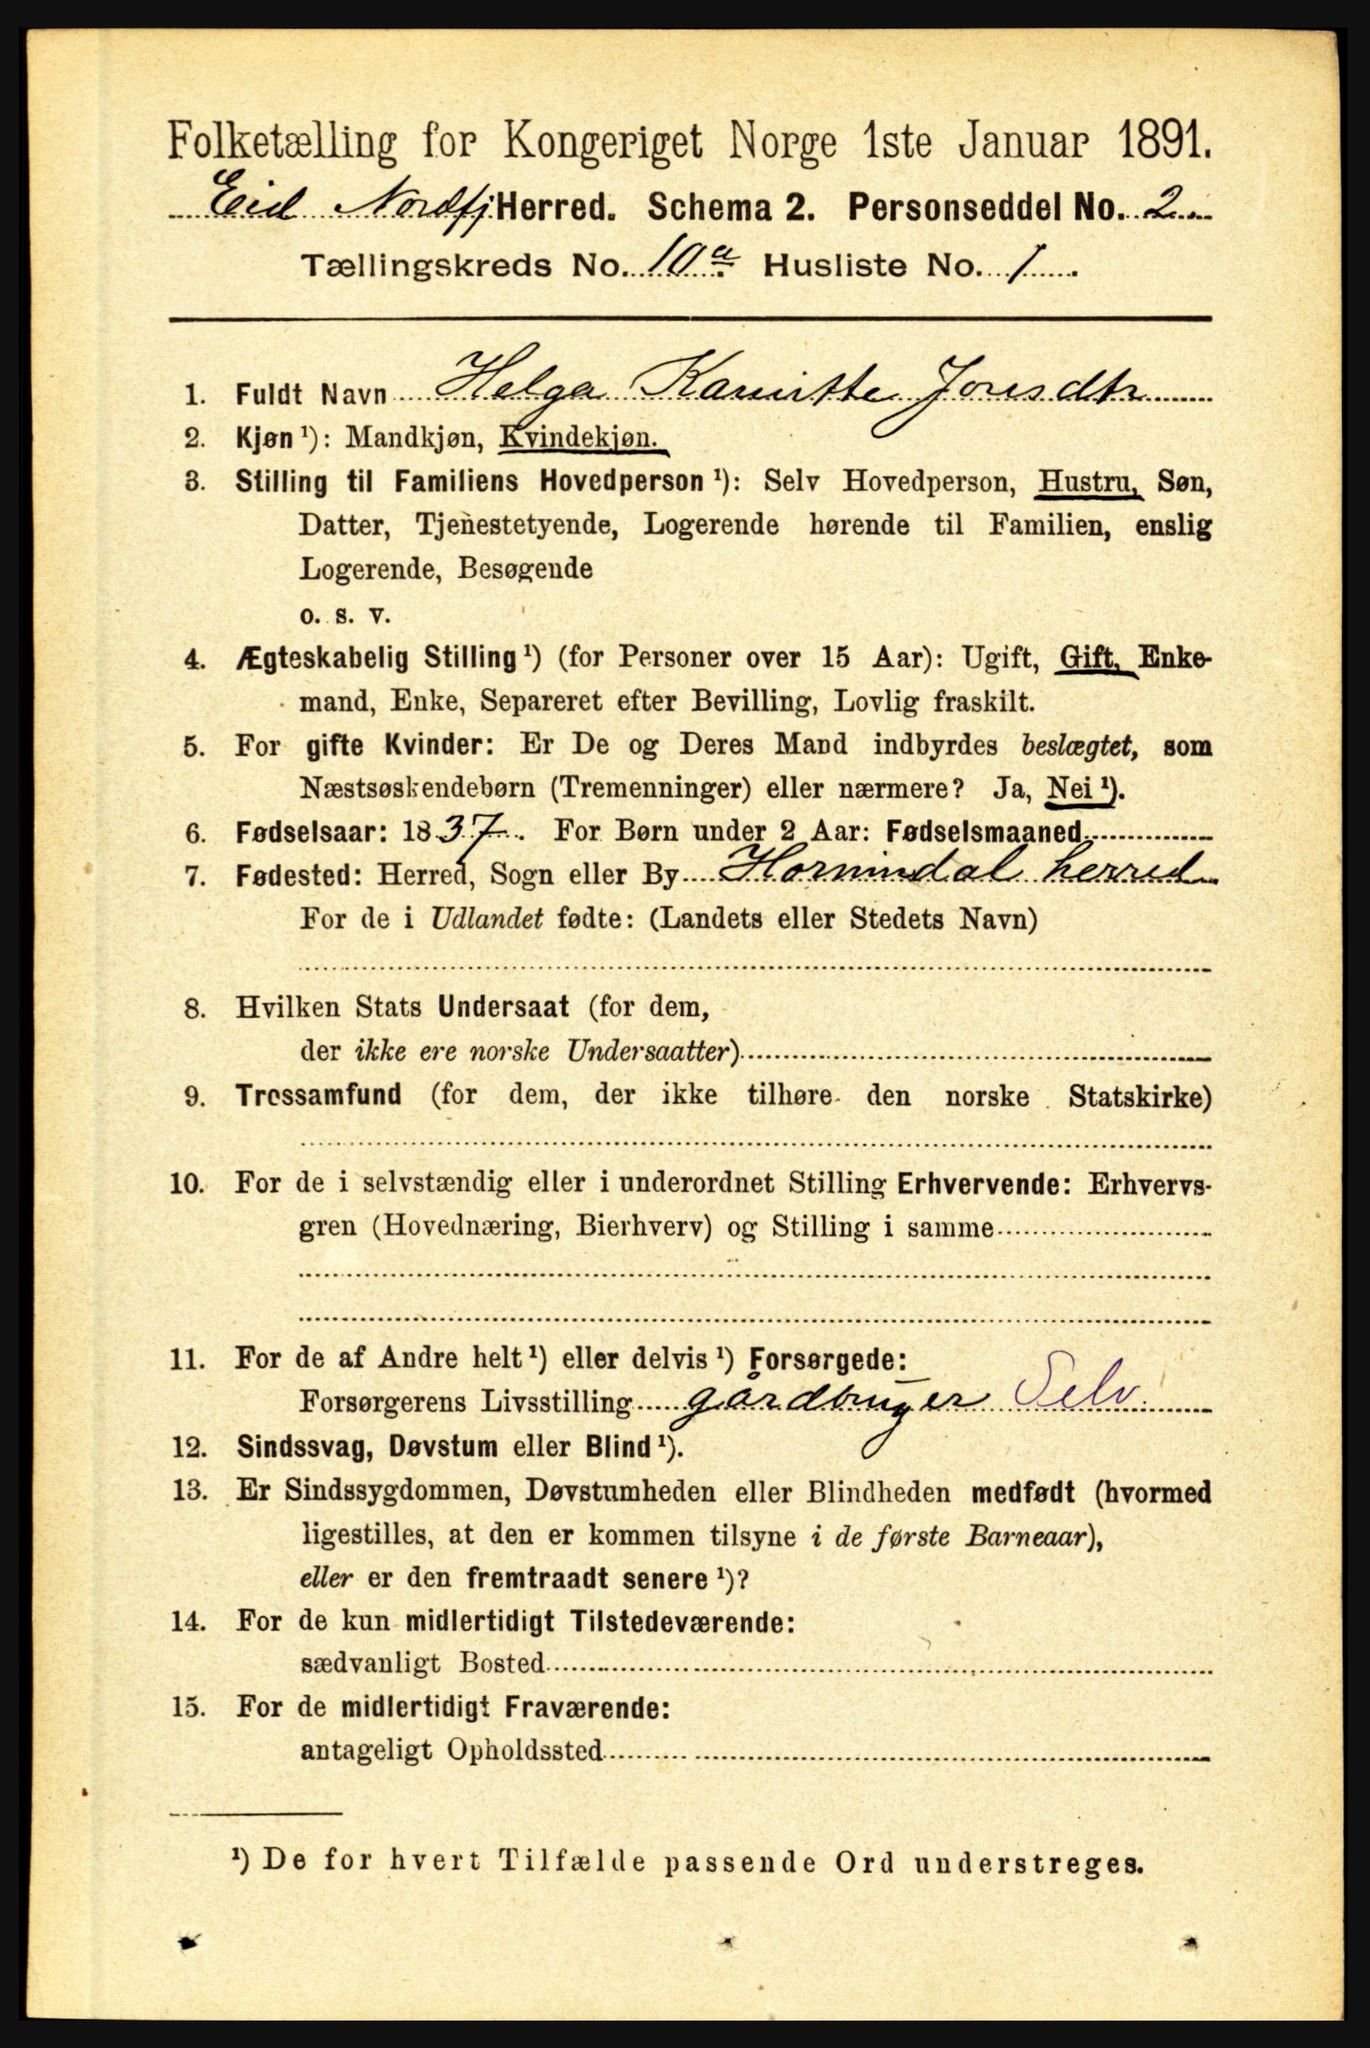 Folketælling for Kongeriget Norge 1ste Januar 1891.
Eid Nordfj Herred. Schema 2. Personseddel No. 2
Tællingskreds No. 10a Husliste No. 1
1. Fuldt Navn Helga Jonsdtr
2. Kjøn ¹): Mandkjøn, Kvindekjøn.
3. Stilling til Familiens Hovedperson ¹): Selv Hovedperson, Hustru, Søn,
Datter, Tjenestetyende, Logerende hørende til Familien, enslig
Logerende, Besøgende
o. s. v.
4. Ægteskabelig Stilling ¹) (for Personer over 15 Aar): Ugift, Gift, Enke-
mand, Enke, Separeret efter Bevilling, Lovlig fraskilt.
5. For gifte Kvinder: Er De og Deres Mand indbyrdes beslægtet, som
Næstsøskendebørn (Tremenninger) eller nærmere? Ja, Nei ¹).
6. Fødselsaar: 1837. For Børn under 2 Aar: Fødselsmaaned
7. Fødested: Herred, Sogn eller By Hornindal herred
For de i Udlandet fødte: (Landets eller Stedets Navn)
8. Hvilken Stats Undersaat (for dem,
der ikke ere norske Undersaatter)
9. Trossamfund (for dem, der ikke tilhøre den norske Statskirke)
10. For de i selvstændig eller i underordnet Stilling Erhvervende: Erhvervs-
gren (Hovednæring, Bierhverv) og Stilling i samme
11. For de af Andre helt ¹) eller delvis ¹) Forsørgede:
Forsørgerens Livsstilling gårdbruger Selv
12. Sindssvag, Døvstum eller Blind ¹).
13. Er Sindssygdommen, Døvstumheden eller Blindheden medfødt (hvormed
ligestilles, at den er kommen tilsyne i de første Barneaar),
eller er den fremtraadt senere ¹)?
14. For de kun midlertidigt Tilstedeværende:
sædvanligt Bosted
15. For de midlertidigt Fraværende:
antageligt Opholdssted
¹) De for hvert Tilfælde passende Ord understreges.